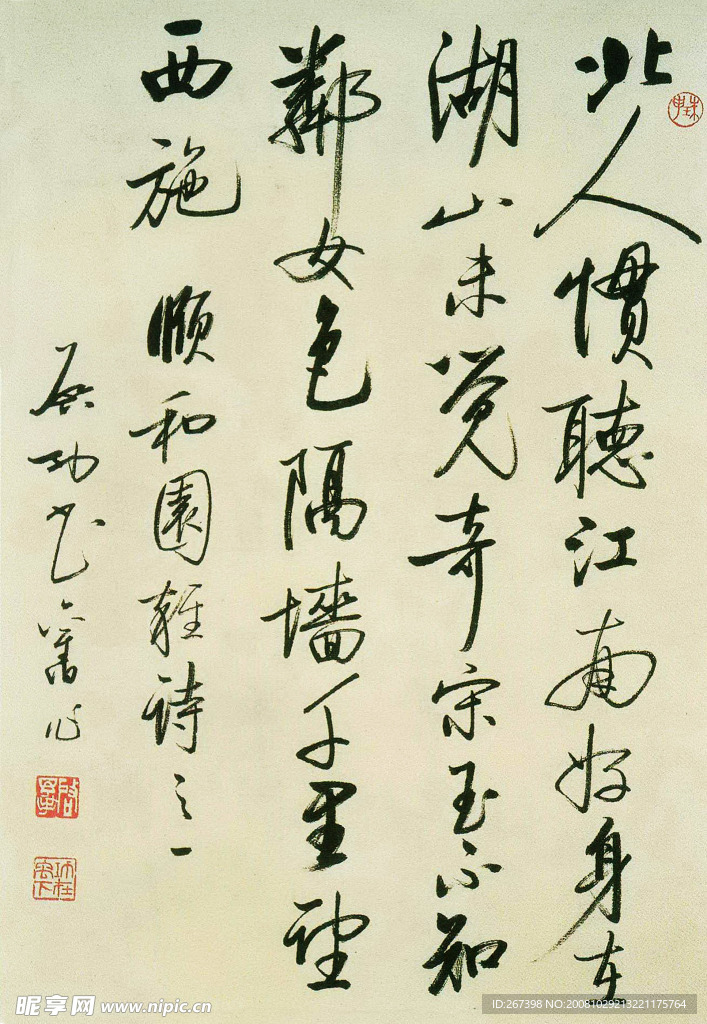 北人惯聽江南好身在
湖山未觉奇宗玉不知
鄰女色隔墙千里望
西施 顺和園雜诗之一
启功书舊作
昵享网 www.nipic.cn
ID:267398 NO:20081029213221175764